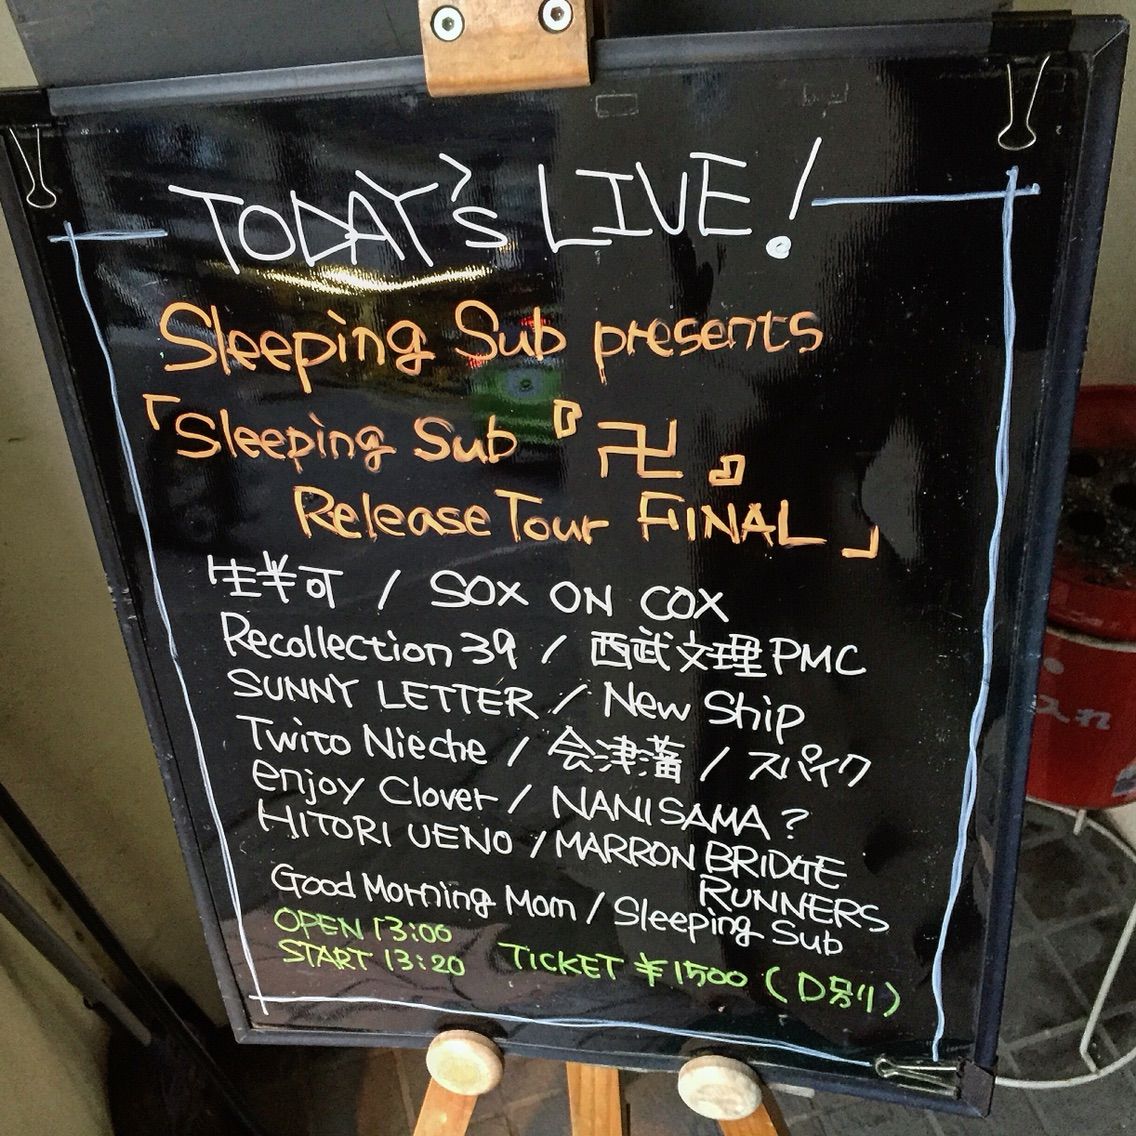 TODAY's LIVE!
Sleeping Sub presents
「Sleeping Sub『卍』
Release Tour FINAL」
生半可 / SOX ON COX
Recollection 39 / 西武文理PMC
SUNNY LETTER / New Ship
Twito Nieche / 会津藩 / スパイク
enjoy Clover / NANISAMA?
HITORI UENO / MARRON BRIDGE
RUNNERS
Good Morning Mom / Sleeping Sub
OPEN 13:00
START 13:20 TICKET ¥1500 (D別)
入れ